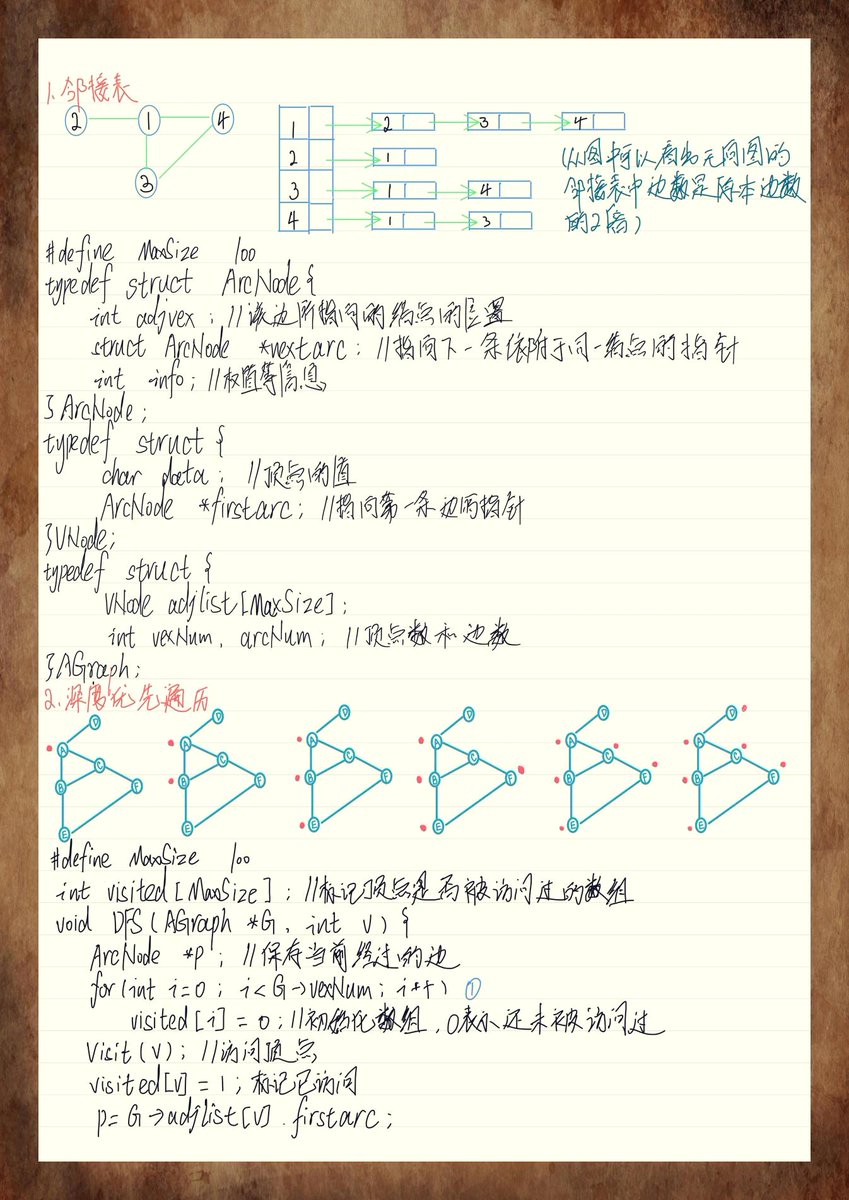 1.邻接表
2 1 4
3
1 2 3 4
2 1
3 1 4
4 1 3
(从图中可以看出无向图的
邻接表中边数是原本边数
的2倍)
#define MaxSize 100
typedef struct ArcNode{
int adjvex; //该边所指向的结点的位置
struct ArcNode *nextarc; //指向下一条依附于同一结点的指针
int info; //权值等信息
}ArcNode;
typedef struct {
char data; //顶点的值
ArcNode *firstarc; //指向第一条边的指针
}VNode;
typedef struct {
VNode adjlist[MaxSize];
int vexNum, arcNum; //顶点数和边数
}AGraph;
2.深度优先遍历
D D D D D D
A A A A A A
C C C C C C
B F B F B F B F B F B F
E E E E E E
#define MaxSize 100
int visited[MaxSize]; //标记顶点是否被访问过的数组
void DFS(AGraph *G, int v) {
ArcNode *p; //保存当前经过的边
for(int i=0; i<G->vexNum; i++) ①
visited[i]=0; //初始化数组,0表示还未被访问过
Visit(v); //访问顶点
visited[v]=1; 标记已访问
p=G->adjlist[v].firstarc;